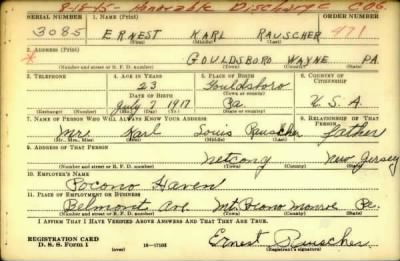 8-15-45- Honorable Discharge C06.
SERIAL NUMBER 1. NAME (Print) ORDER NUMBER
3085 ERNEST KARL RAUSCHER 971
(First) (Middle) (Last)
2. ADDRESS (Print)
* GOULDSBORO WAYNE PA.
(Number and street or R. F. D. number) (Town) (County) (State)
3. TELEPHONE 4. AGE IN YEARS 5. PLACE OF BIRTH 6. COUNTRY OF CITIZENSHIP
23 Gouldsboro
DATE OF BIRTH (Town or county)
July 7 1917 Pa. U.S.A.
(Exchange) (Number) (Mo.) (Day) (Yr.) (State or country)
7. NAME OF PERSON WHO WILL ALWAYS KNOW YOUR ADDRESS 8. RELATIONSHIP OF THAT PERSON
Mr. Karl Louis Rauscher father
(Mr., Mrs., Miss) (First) (Middle) (Last)
9. ADDRESS OF THAT PERSON
Netcong New Jersey
(Number and street or R. F. D. number) (Town) (County) (State)
10. EMPLOYER'S NAME
Pocono Haven
11. PLACE OF EMPLOYMENT OR BUSINESS
Belmont Ave Mt. Pocono Monroe Pa.
(Number and street or R. F. D. number) (Town) (County) (State)
I AFFIRM THAT I HAVE VERIFIED ABOVE ANSWERS AND THAT THEY ARE TRUE.
REGISTRATION CARD
D. S. S. Form 1 (over) 16-17105 Ernest Rauscher
(Registrant's signature)